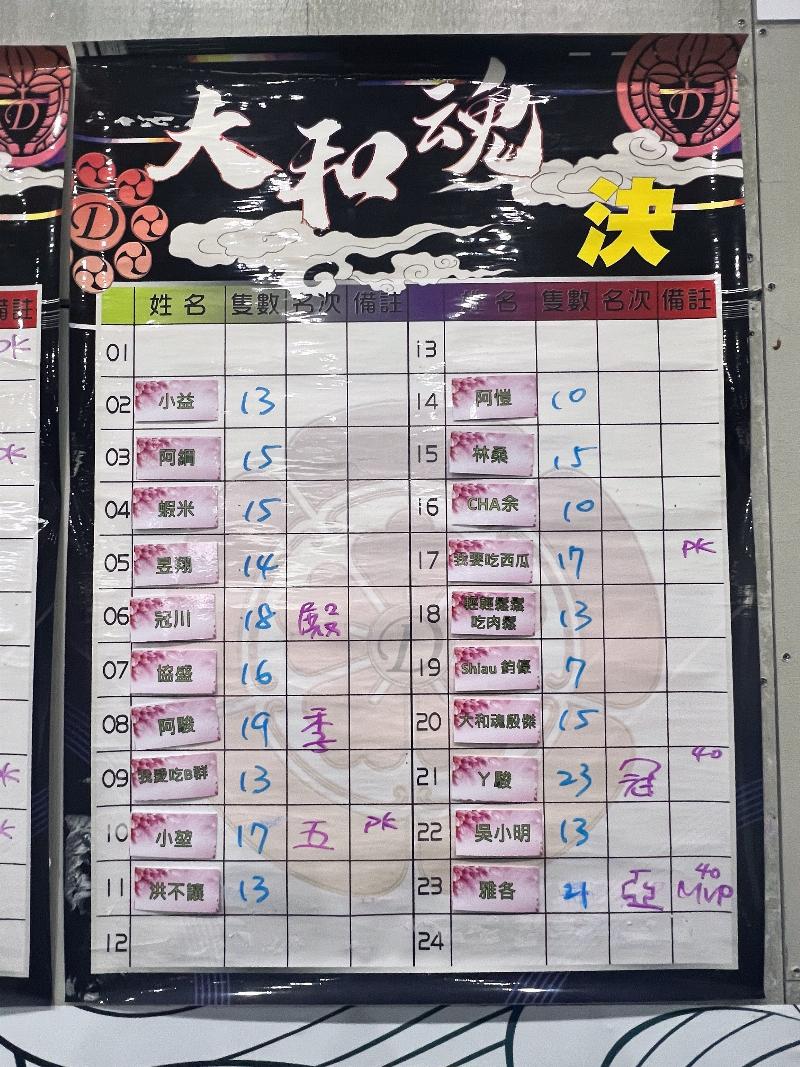 大和魂
決
姓名 隻數 名次 備註 姓名 隻數 名次 備註
01 13
02 小益 13 14 阿愷 10
03 阿鋼 15 15 林桑 15
04 蝦米 15 16 CHA余 10
05 昱翔 14 17 我要吃西瓜 17 PK
06 冠川 18 殿 18 輕輕鬆鬆吃肉鬆 13
07 協盛 16 19 Shiau 鈞 7
08 阿駿 19 季 20 大和魂殷傑 15
09 我愛吃B群 13 21 丫駿 23 冠 40
10 小堃 17 五 PK 22 吳小明 13
11 洪不讓 13 23 雅各 21 亞 40 MVP
12 24